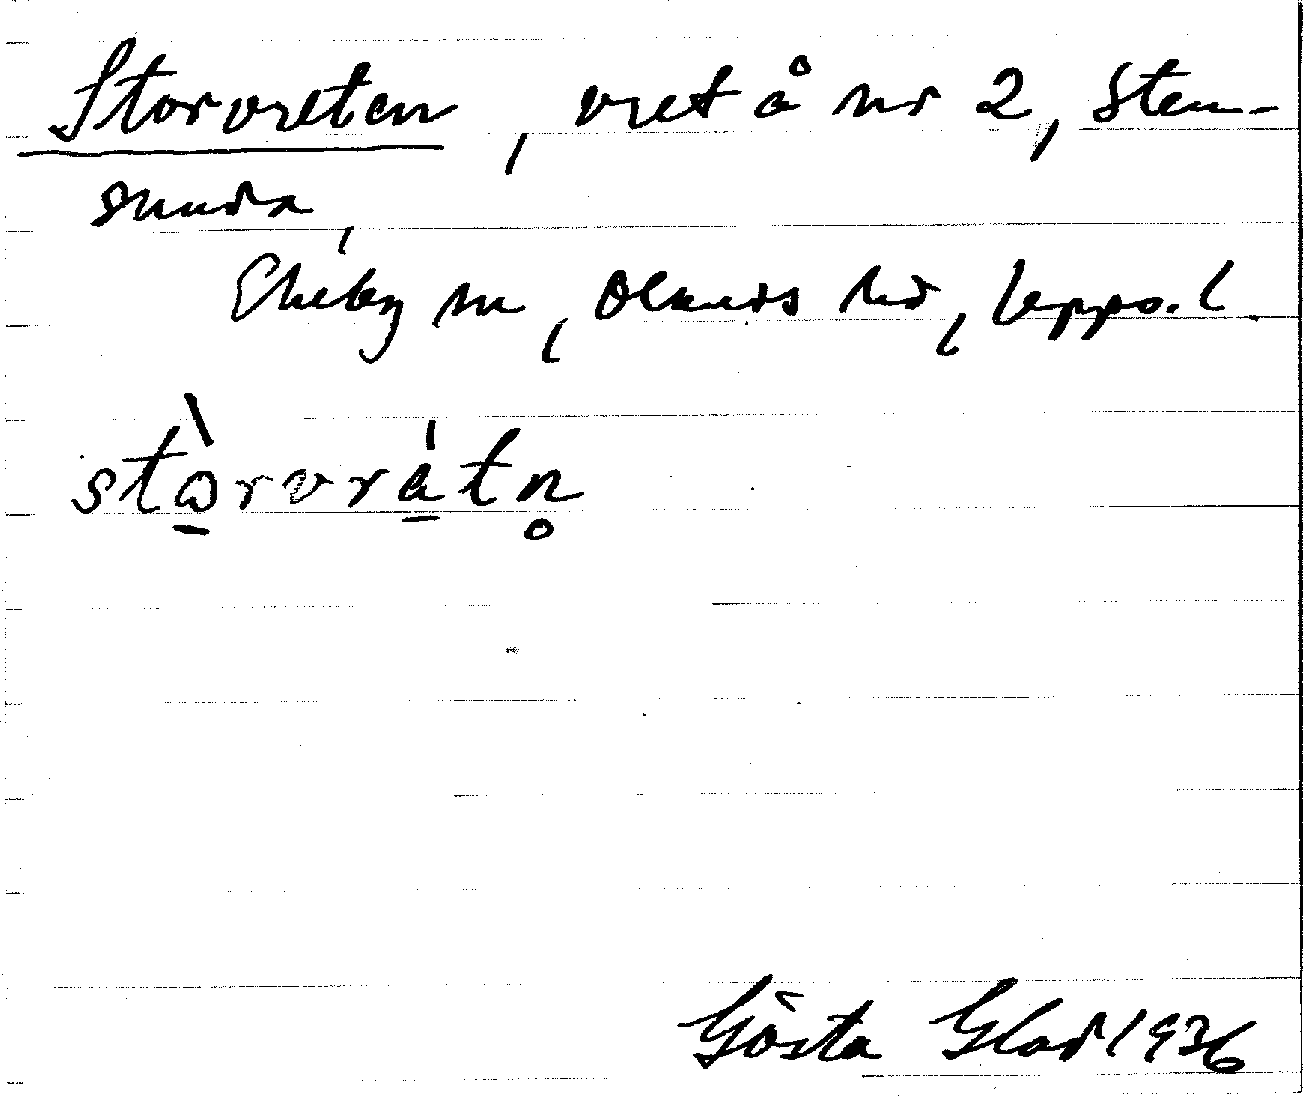 Storvreten, vret å nr 2, Sten-
sunda,
Ekeby sn, Olands hd, Upps. l.
stòrvrátn̥
Gösta Glad 1936